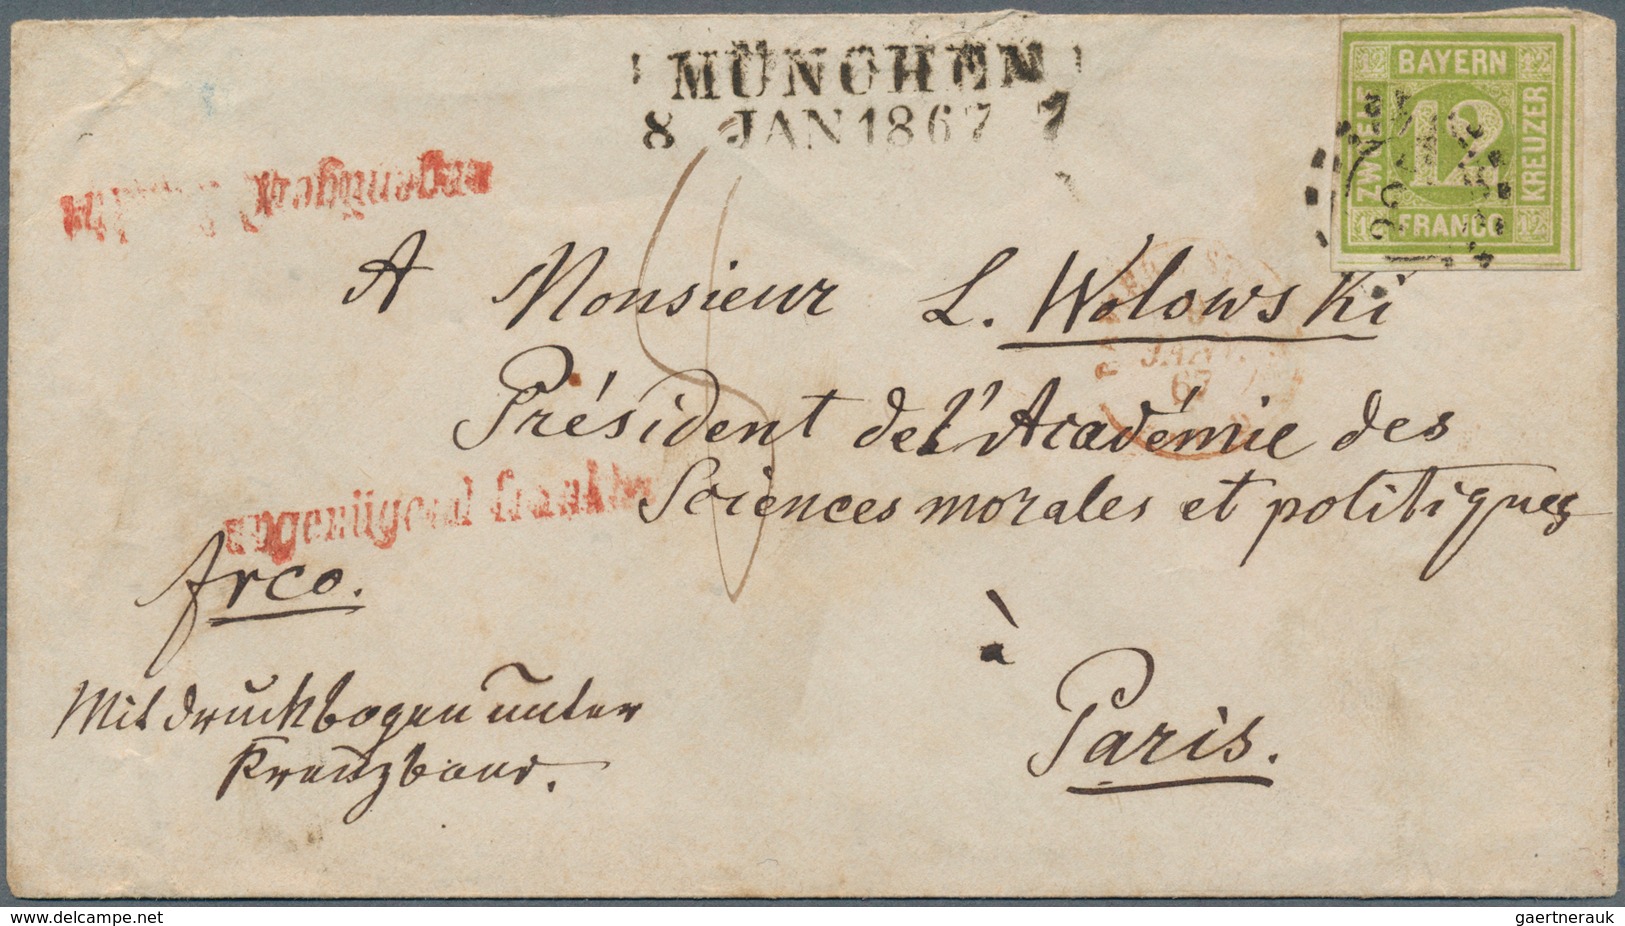 MÜNCHEN
8 JAN 1867 7
BAYERN
ZWÖLF
12
KREUZER
FRANCO
12 12 12
A Monsieur L. Wolowski
Président de l'Académie des
Sciences morales et politiques
ungenügend frankirt
frco.
à
Paris.
Mit druckbogen unter
Kreuzband.
JANV.
67
delcampe.net
gaertnerauk //